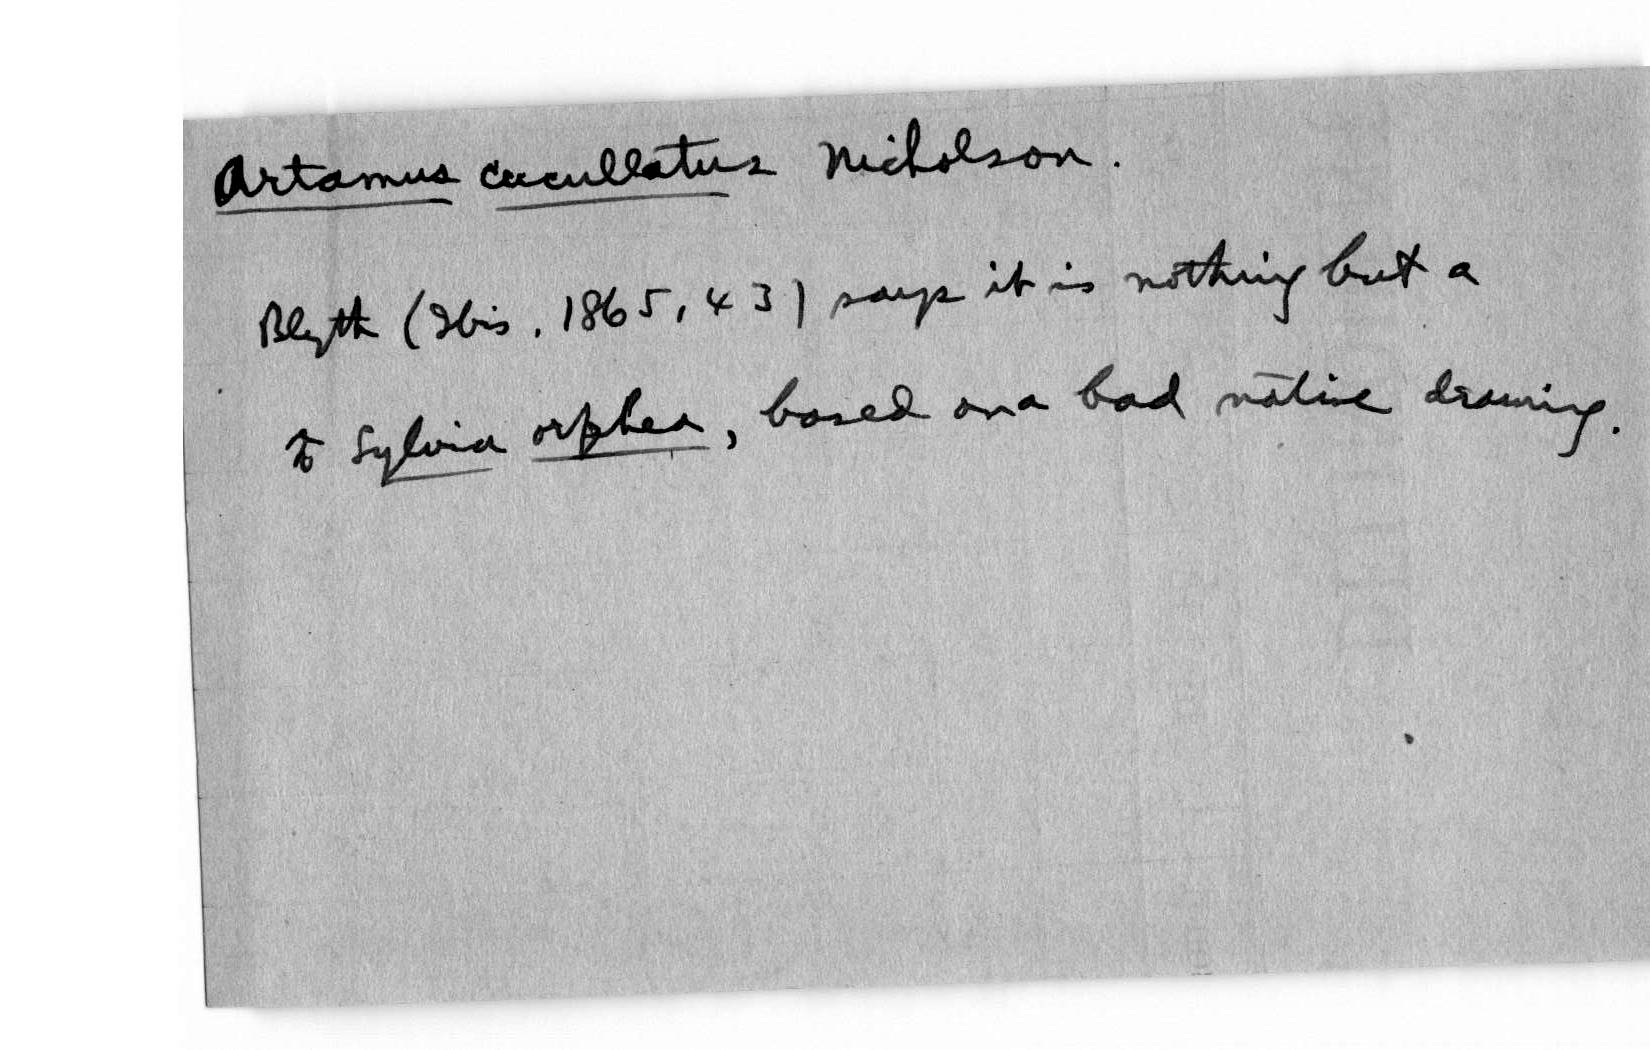 Artamus cucullatus Nicholson.
Blyth (Ibis, 1865, 43) says it is nothing but a
♂ Sylvia orphea, based on a bad native drawing.